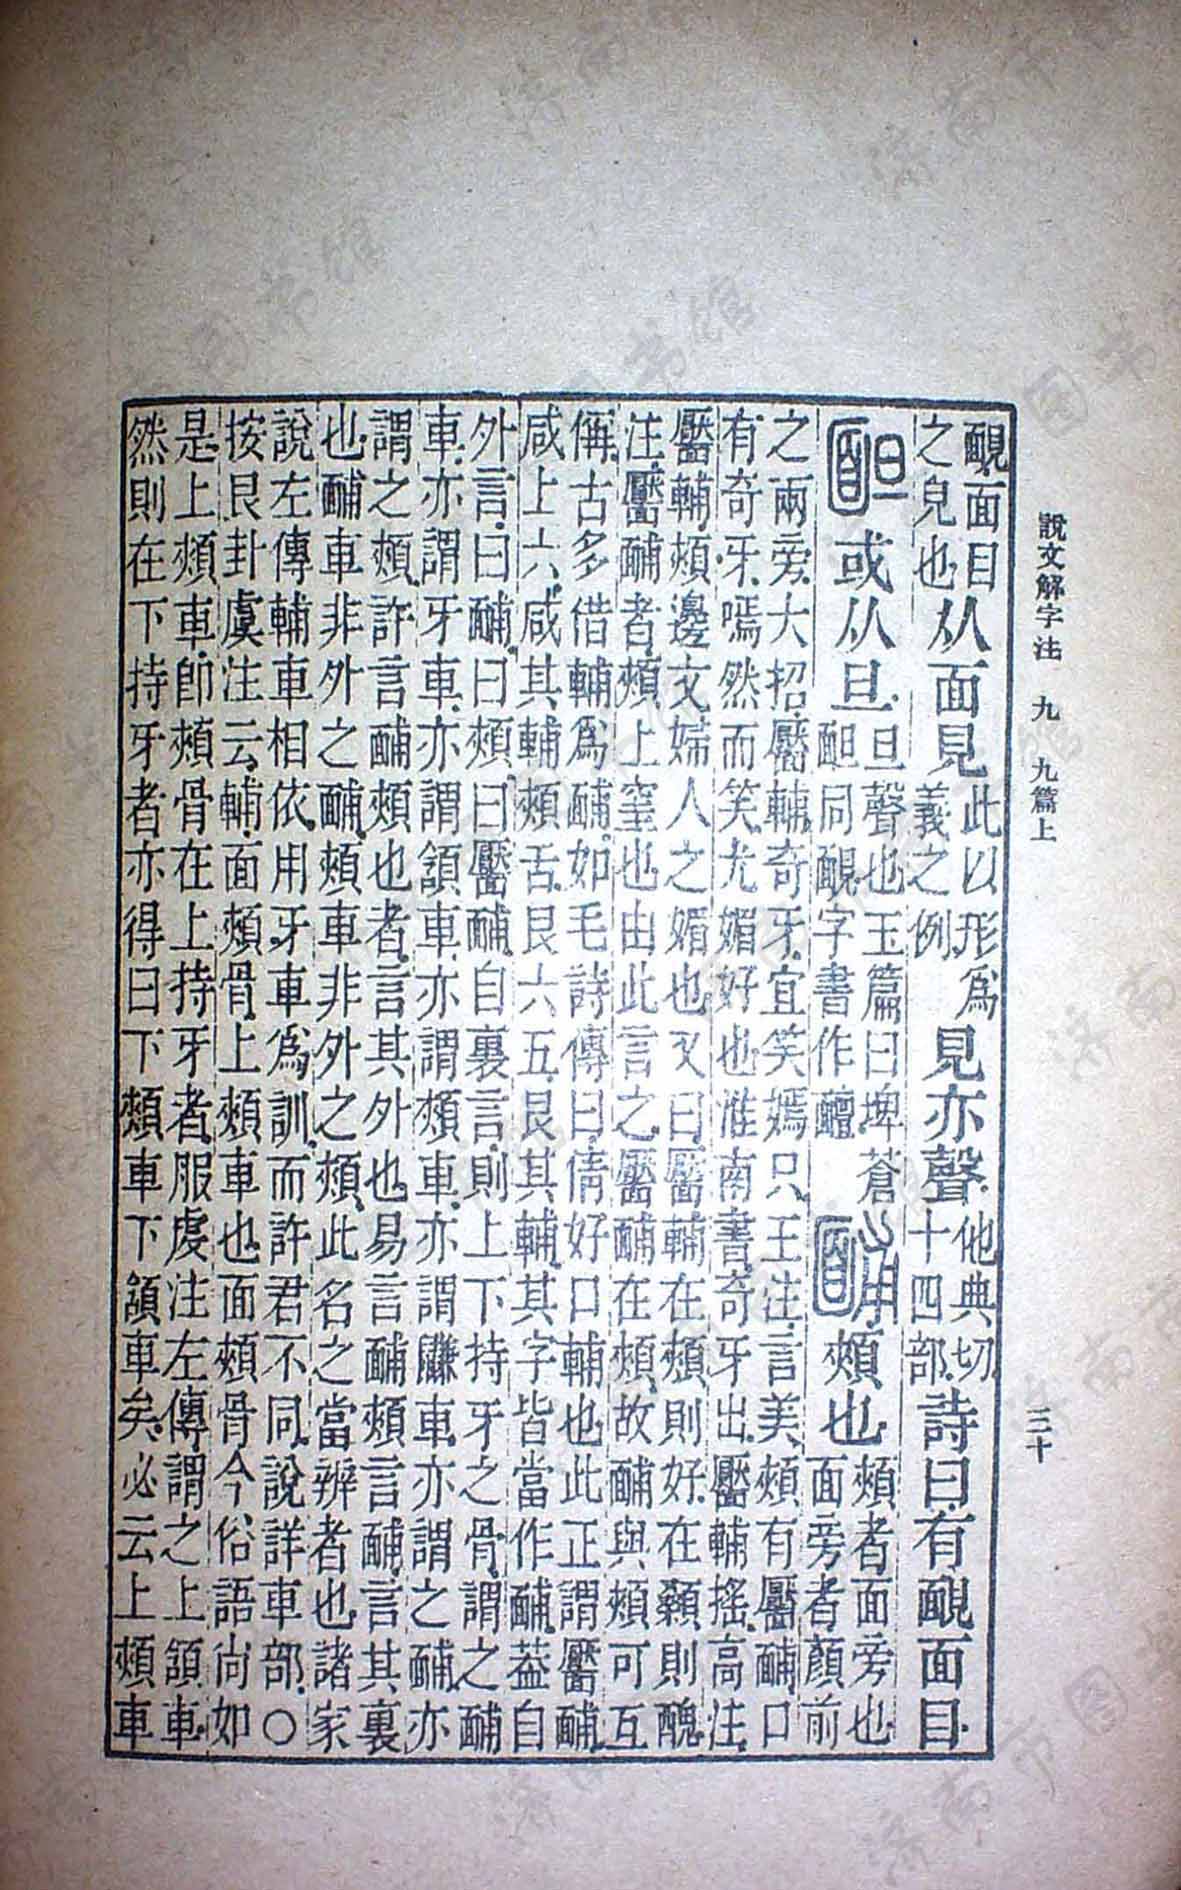 說文解字注 九 九篇上 三十
靦面目之皃也从面見此以形爲義之例見亦聲他典切十四部詩曰有靦面目
䩄或从旦旦聲也玉篇曰埤蒼䩄同靦字書作 䩉頰也頰者面旁也面旁者顏前
之兩旁大招靨輔奇牙宜笑嫣只王注言美頰有靨䩉口
有奇牙嘕然而笑尤媚好也淮南書奇牙出靨輔搖高注
靨輔頰邊文婦人之媚也又曰靨輔在頰則好在顙則醜
注靨䩉者頰上窐也由此言之靨䩉在頰故䩉與頰可互
偁古多借輔爲䩉如毛詩傳曰倩好口輔也此正謂靨䩉
咸上六咸其輔頰舌艮六五艮其輔其字皆當作䩉葢自
外言曰䩉曰頰曰靨䩉自裏言則上下持牙之骨謂之䩉
車亦謂牙車亦謂頷車亦謂頰車亦謂鼸車亦謂之䩉亦
謂之頰許言䩉頰也者言其外也易言䩉頰言䩉言其裏
也䩉車非外之䩉頰車非外之頰此名之當辨者也諸家
說左傳輔車相依用牙車爲訓而許君不同說詳車部○
按艮卦虞注云輔面頰骨上頰車也面頰骨今俗語尚如
是上頰車卽頰骨在上持牙者服虔注左傳謂之上頷車
然則在下持牙者亦得曰下頰車下頷車矣必云上頰車